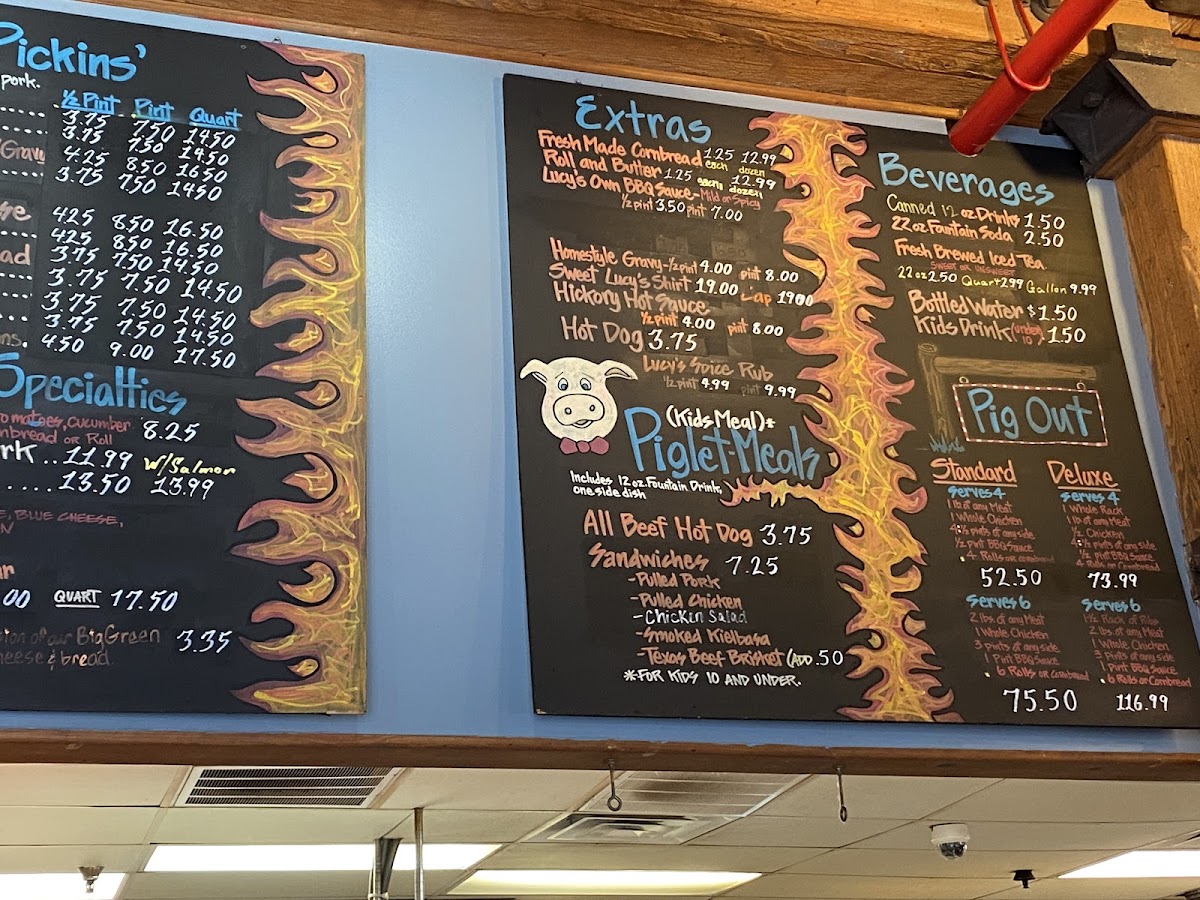 Pickins'
pork.
1/2 Pint Pint Quart
3.75 7.50 14.50
3.75 7.50 14.50
Gravy 4.25 8.50 16.50
3.75 7.50 14.50
4.25 8.50 16.50
4.25 8.50 16.50
3.75 7.50 14.50
3.75 7.50 14.50
3.75 7.50 14.50
3.75 7.50 14.50
4.50 9.00 17.50
Specialties
omatoes, cucumber
nbread or Roll 8.25
rk.. 11.99 w/Salmon
..... 13.50 13.99
E, BLUE CHEESE,
00 QUART 17.50
sion of our Big Green
heese & bread 3.35
Extras
Fresh Made Cornbread 1.25 each 12.99 dozen
Roll and Butter 1.25 each 12.99 dozen
Lucy's Own BBQ Sauce - Mild or Spicy
1/2 pint 3.50 pint 7.00
Homestyle Gravy - 1/2 pint 4.00 pint 8.00
Sweet Lucy's Shirt 19.00 Cap 19.00
Hickory Hot Sauce
1/2 pint 4.00 pint 8.00
Hot Dog 3.75
Lucy's Spice Rub
1/2 pint 4.99 pint 9.99
(Kids Meal)*
Piglet-Meals
Includes 12 oz. Fountain Drink,
one side dish
All Beef Hot Dog 3.75
Sandwiches 7.25
-Pulled Pork
-Pulled Chicken
-Chicken Salad
-Smoked Kielbasa
-Texas Beef Brisket (ADD .50
*FOR KIDS 10 AND UNDER.
Beverages
Canned 12 oz Drinks 1.50
22 oz Fountain Soda 2.50
Fresh Brewed Iced Tea
SWEET OR UNSWEET
22 oz 2.50 Quart 2.99 Gallon 9.99
Bottled Water $1.50
Kids Drink (under 10) 1.50
Pig Out
Standard
Serves 4
1 lb of any Meat
1 Whole Chicken
4 1/2 pints of any side
1/2 pint BBQ Sauce
4 Rolls or cornbread
52.50
Serves 6
2 lbs. of any Meat
1 Whole Chicken
3 pints of any side
1 Pint BBQ Sauce
6 Rolls or cornbread
75.50
Deluxe
Serves 4
1 Whole Rack
1 lb of any Meat
1/2 Chicken
4 1/2 pints of any side
1/2 pint BBQ Sauce
4 Rolls or Cornbread
73.99
Serves 6
1 1/2 Rack of Ribs
2 lbs. of any Meat
1 Whole Chicken
3 Pints of any side
1 pint BBQ Sauce
6 Rolls or Cornbread
116.99